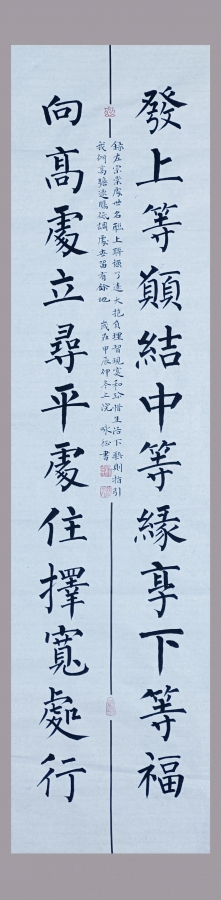 發上等願結中等緣享下等福
向高處立尋平處住擇寬處行
錄左宗棠處世名聯上聯揭了遠大抱負理智現實和珍惜生活下聯則指引
我們高瞻遠矚低調處世留有餘地 歲在甲辰仲冬上浣 詠松書